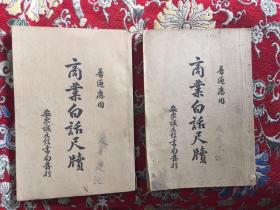 普通應用
商業白話尺牘
安東誠文信書局發行
普通應用
商業白話尺牘
安東誠文信書局發行